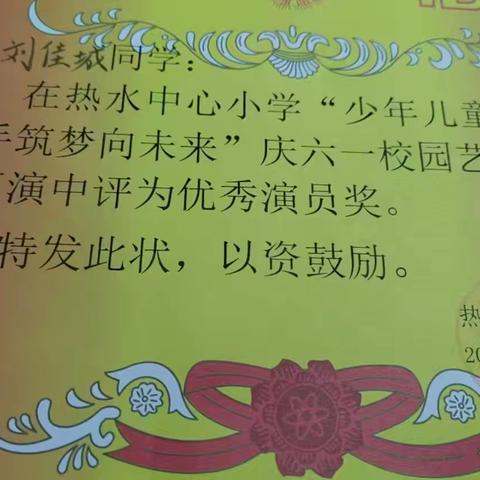 刘佳城同学：
在热水中心小学“少年儿童
筑梦向未来”庆六一校园艺
演中评为优秀演员奖。
特发此状，以资鼓励。
热
20